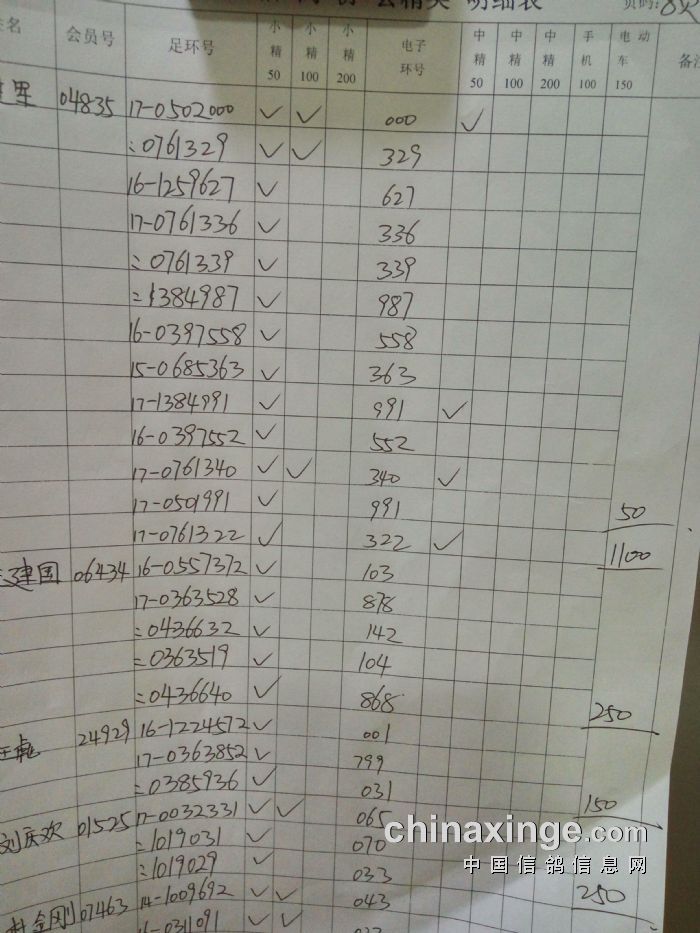 明细表 页码:8页
名 会员号 足环号 小精50 小精100 小精200 电子环号 中精50 中精100 中精200 手机100 电动车150 备注
里 04835 17-0502000 ✓ ✓ 000 ✓
:0761329 ✓ ✓ 329
16-1259627 ✓ 627
17-0761336 ✓ 336
:0761339 ✓ 339
=1384987 ✓ 987
16-0397558 ✓ 558
15-0685363 ✓ 363
17-1384991 ✓ 991 ✓
16-0397552 ✓ 552
17-0761340 ✓ ✓ 340 ✓
17-0501991 ✓ 991 50
17-0761322 ✓ 322 ✓ 1100
建国 06434 16-0557372 ✓ 103
17-0363528 ✓ 878
:0436632 ✓ 142
:0363519 ✓ 104
:0436640 ✓ 868 250
24929 16-1224572 ✓ 001
17-0363852 ✓ 799
:0385936 ✓ 031 150
刘庆欢 01525 17-0032331 ✓ ✓ 065
:1019031 ✓ 070
:1019029 ✓ 033 250
金刚 07463 14-1009692 ✓ ✓ 043
16-0311091 ✓ ✓
chinaxinge.com
中国信鸽信息网